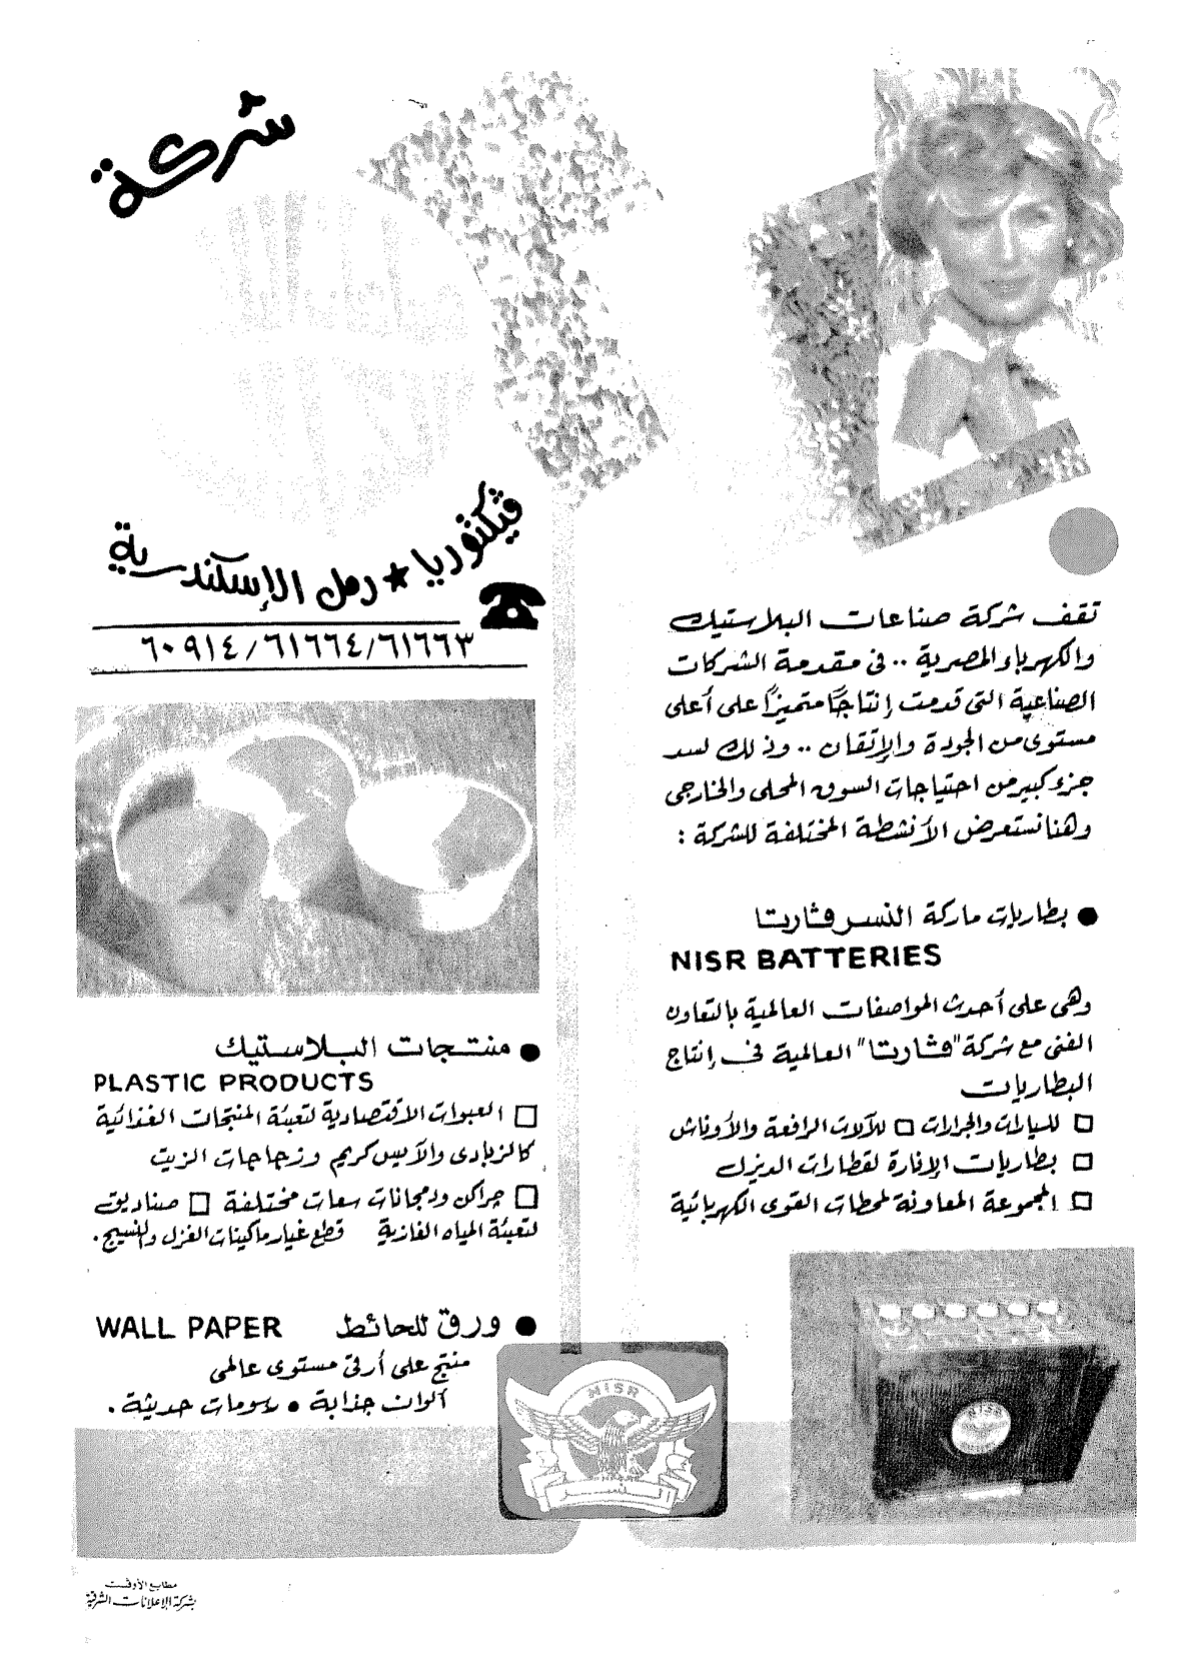 شركة
ڤيكتوريا ★ رمل الإسكندرية
٦٠٩١٤/٦١٦٦٤/٦١٦٦٣
تقف شركة صناعات البلاستيك
والكهرباء المصرية .. فى مقدمة الشركات
الصناعية التى قدمت إنتاجًا متميزًا على أعلى
مستوى من الجودة والإتقان .. وذلك لسد
جزء كبير من احتياجات السوق المحلى والخارجى
وهنا نستعرض الأنشطة المختلفة للشركة :
● بطاريات ماركة النسر ڤارتا
NISR BATTERIES
وهى على أحدث المواصفات العالمية بالتعاون
الفنى مع شركة "ڤارتا" العالمية فى إنتاج
البطاريات
□ للسيارات والجرارات □ للآلات الرافعة والأوناش
□ بطاريات الإنارة لقطارات الديزل
□ المجموعة المعاونة لمحطات القوى الكهربائية
● منتجات البلاستيك
PLASTIC PRODUCTS
□ العبوات الاقتصادية لتعبئة المنتجات الغذائية
كالزبادى والآيس كريم وزجاجات الزيت
□ جراكن ودمجانات سعات مختلفة □ صناديق
لتعبئة المياه الغازية قطع غيار ماكينات الغزل والنسيج .
● ورق للحائط WALL PAPER
منتج على أرقى مستوى عالمى
ألوان جذابة ● رسومات حديثة .
NISR
النسر
NISR
مطابع الأوفست
بشركة الإعلانات الشرقية